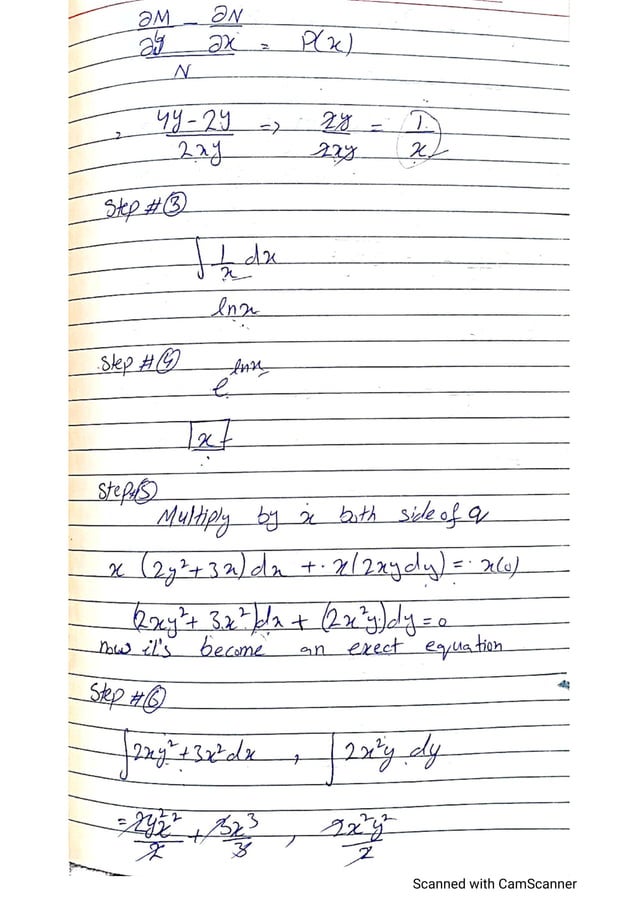 ∂M/∂y − ∂N/∂x / N = P(x)
, 4y − 2y / 2xy => 2y / 2xy = 1/x
Step # ③
∫ 1/x dx
lnx
Step # ④
e^lnx
x
Step#⑤
Multiply by x both side of q
x (2y² + 3x) dx + x(2xy dy) = x(0)
(2xy² + 3x²)dx + (2x²y)dy = 0
now it's become an exect equation
Step #⑥
∫ 2xy² + 3x² dx , ∫ 2x²y dy
= 2y²x²/2 + 3x³/3 , 2x²y²/2
Scanned with CamScanner